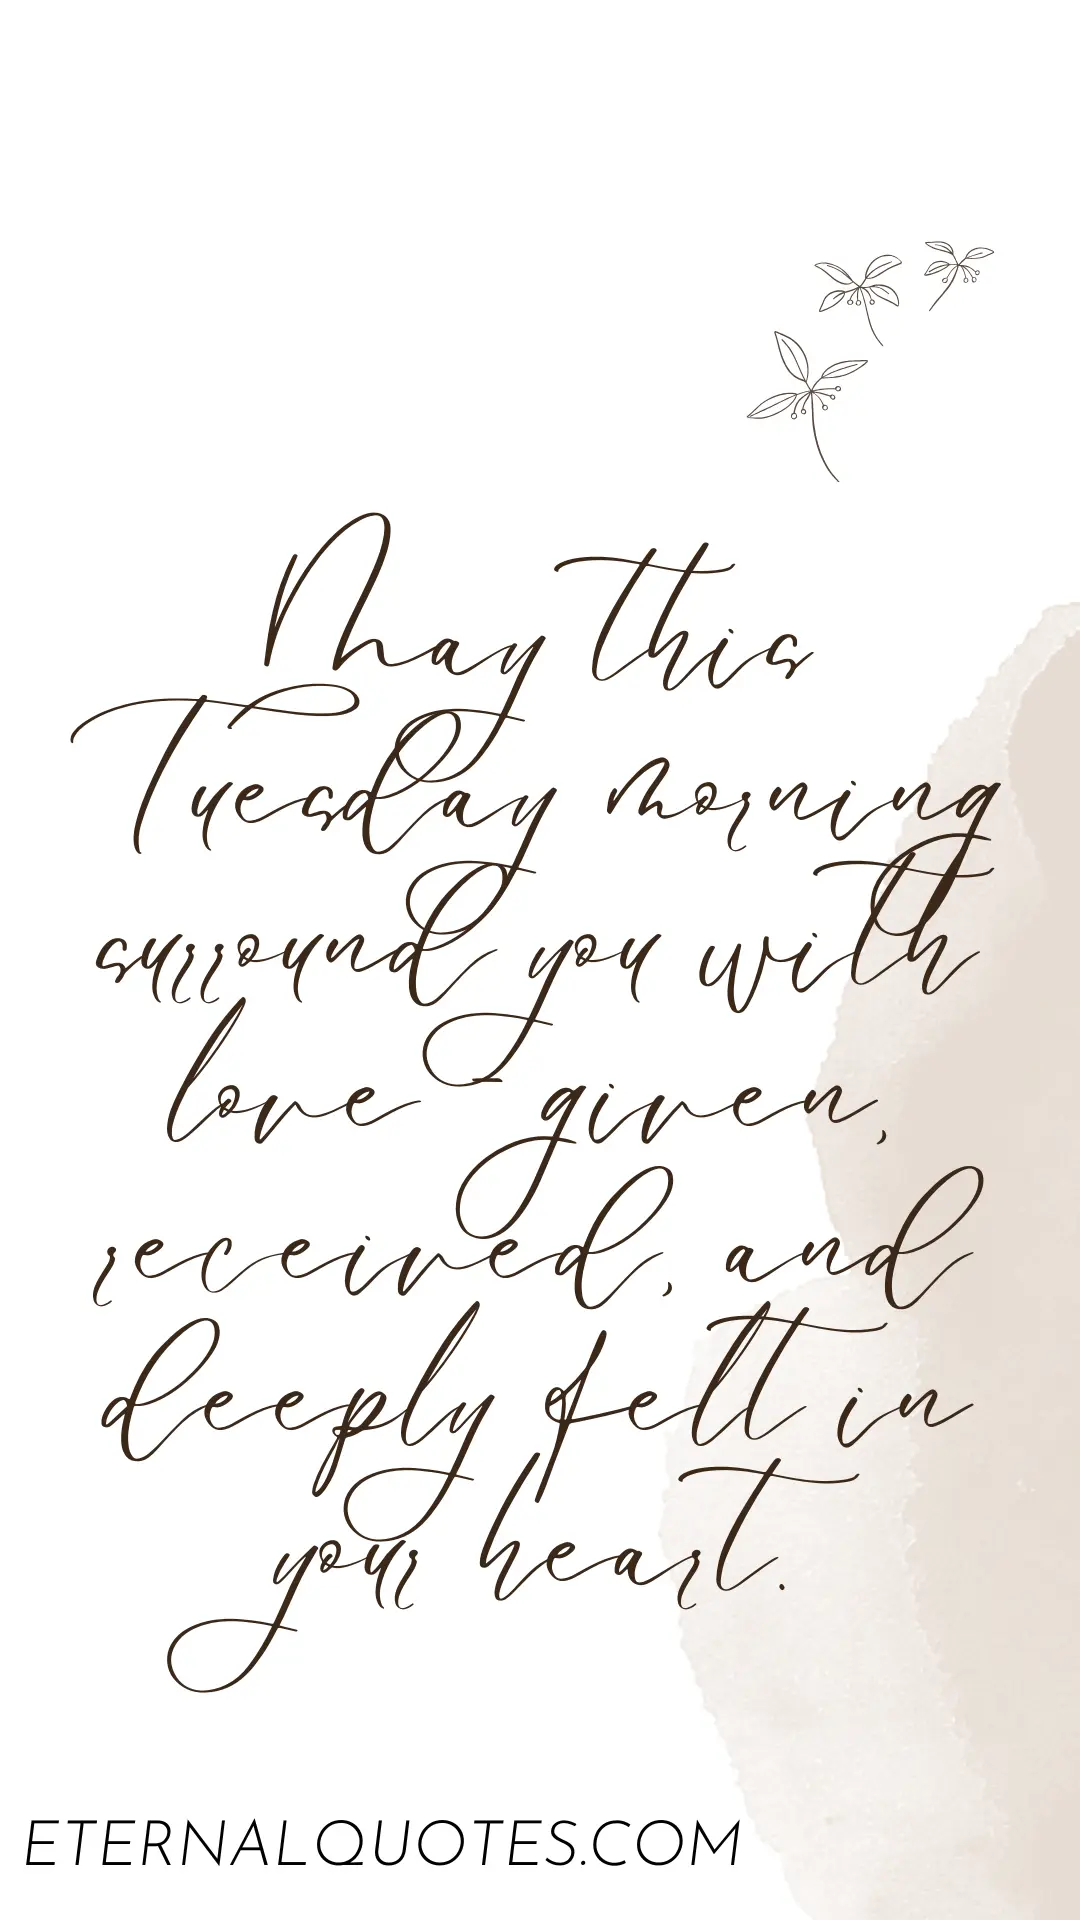 May this
Tuesday morning
surround you with
love - given,
received, and
deeply felt in
your heart.
ETERNALQUOTES.COM